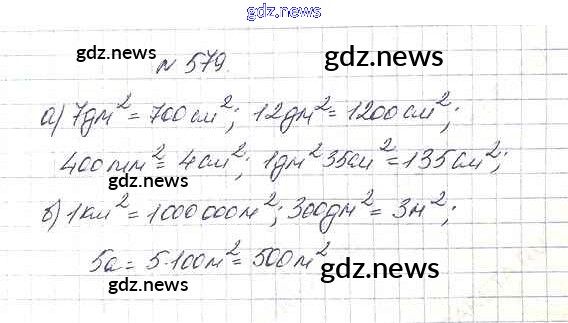 gdz.news
gdz.news № 579. gdz.news
а) 7дм² = 700см²; 12дм² = 1200см²;
400мм² = 4см²; 1дм² 35см² = 135см²;
б) 1км² = 1000 000м²; 300дм² = 3м²;
5а = 5·100м² = 500м²
gdz.news gdz.news